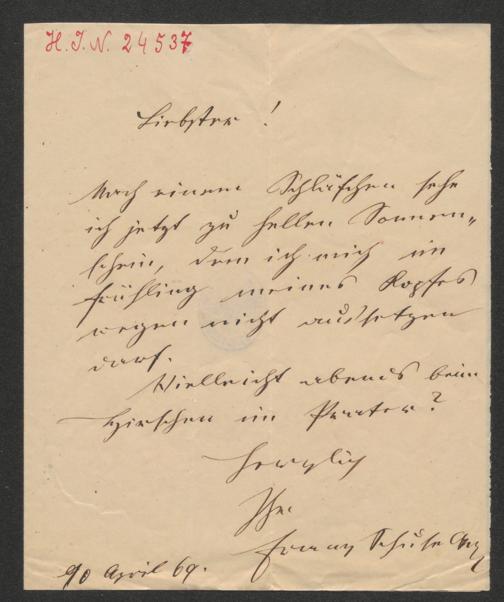 H. I. N. 24537
Liebster!
Nach einem Schläfchen sehe
ich jetzt zu hellen Sonnen-
schein, dem ich mich im
Frühling meines Kopfes
wegen nicht aussetzen
darf.
Vielleicht abends beim
Hirschen im Prater?
Herzlich
Ihr
Franz
April 69.